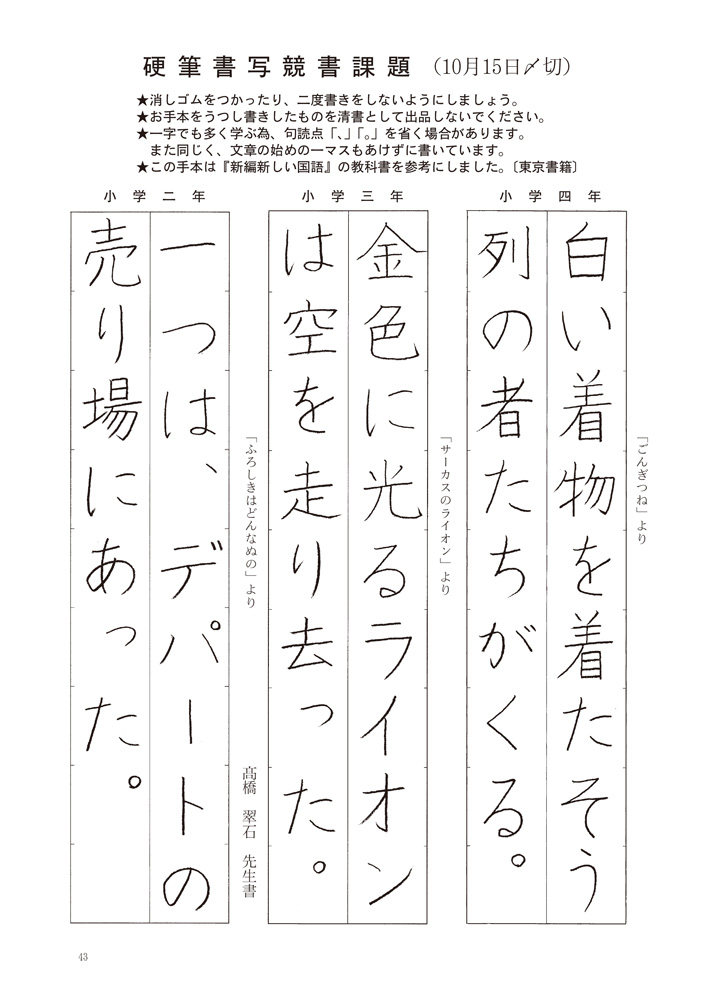 硬筆書写競書課題 (10月15日〆切)
★消しゴムをつかったり、二度書きをしないようにしましょう。
★お手本をうつし書きしたものを清書として出品しないでください。
★一字でも多く学ぶ為、句読点「、」「。」を省く場合があります。
また同じく、文章の始めの一マスもあけずに書いています。
★この手本は『新編新しい国語』の教科書を参考にしました。〔東京書籍〕
小学四年
「ごんぎつね」より
白い着物を着たそう
列の者たちがくる。
小学三年
「サーカスのライオン」より
金色に光るライオン
は空を走り去った。
小学二年
「ふろしきはどんなぬの」より
一つは、デパートの
売り場にあった。
髙橋 翠石 先生書
43